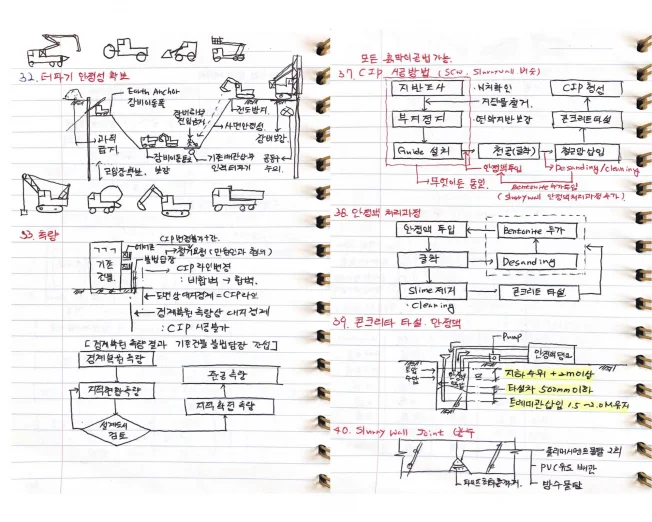 32. 터파기 안정성 확보
Earth Anchor
장비이동폭
장비하부
진입금지
전도방지.
사면안정성
과적
금지.
장비이동동선
보강
기존배관상부
인력터파기
장비보강.
공중선
주의.
33. 측량
CIP변경불가구간.
철거요청 (만원인과 협의)
불법담장
기존
건물.
CIP 라인변경
: 비합벽 → 합벽.
도면상 대지경계 = CIP라인
경계복원 측량상 대지경계
: CIP 시공불가
[경계복원 측량 결과 기존건물 불법담장 간섭]
경계복원 측량
지적현황측량
설계도서
검토
준공측량
지적확정측량
모든 흙막이공법가능.
37. CIP 시공방법 (SCW, Slurrywall 비슷)
지반조사
· 위치확인
지장물철거.
부지정지
· 연약지반보강
Guide 설치
천공(굴착)
철근망삽입
콘크리트타설
CIP 형성
안정액투입
Desanding/cleaning
무엇이든 동원.
Bentonite 추가투입
(Slurry wall 안정액처리과정 추가)
38. 안정액 처리과정
안정액 투입
Bentonite 추가
굴착
Desanding
Slime 제거
콘크리트 타설.
· Cleaning
39. 콘크리트 타설. 안정액
Pump
안정액탱크
토압
수압
안정액
지하수위 + 2m이상
타설차 500mm이하
트레미관삽입 1.5~2.0M유지
40. Slurry Wall Joint 방수
폴리머시멘트몰탈 2회
PVC유도배관
방수몰탈